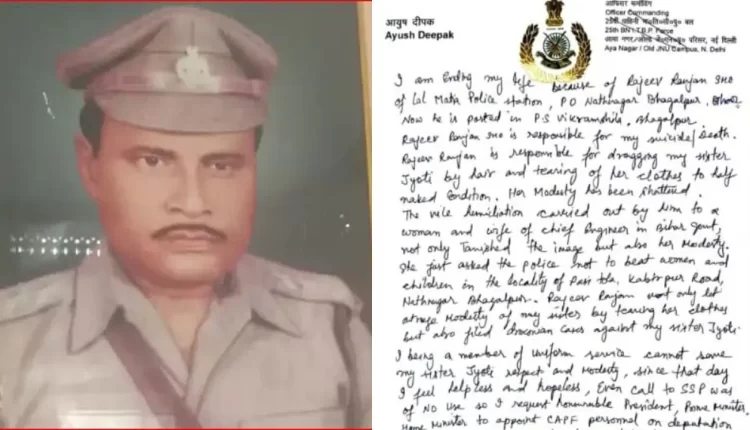 आयुष दीपक
Ayush Deepak
आफिसर कमांडिंग
Officer Commanding
25वीं
25th BN I.T.B.P. Force
नई दिल्ली
Aya Nagar / Old JNU Campus, N. Delhi
I am Ending my life because of Rajeev Ranjan SHO
of Lal Matia Police station, PO Nathnagar Bhagalpur,
Now he is posted in P.S Vikramshila, Bhagalpur.
Rajeev Ranjan SHO is responsible for my suicide/Death.
Rajeev Ranjan is responsible for dragging my sister
Jyoti by hair and tearing of her clothes to half
naked Condition. Her Modesty has been shattered.
The vile humiliation carried out by him to a
woman and wife of chief Engineer in Bihar Govt,
not only Tarnished the image but also her Modesty.
She just asked the Police not to beat women and
children in the locality of Pasi tola, Kabirpur Road,
Nathnagar Bhagalpur. Rajeev Ranjan not only
outrage Modesty of my sister by tearing her clothes
but also filed draconian cases against my sister Jyoti.
I being a member of uniform service cannot save
my sister Jyoti respect and Modesty, since that day
I feel helpless and hopeless, Even call to SSP was
of NO use so I request honourable President, Prime Minister,
Home Minister to appoint CAPF personnel on deputation